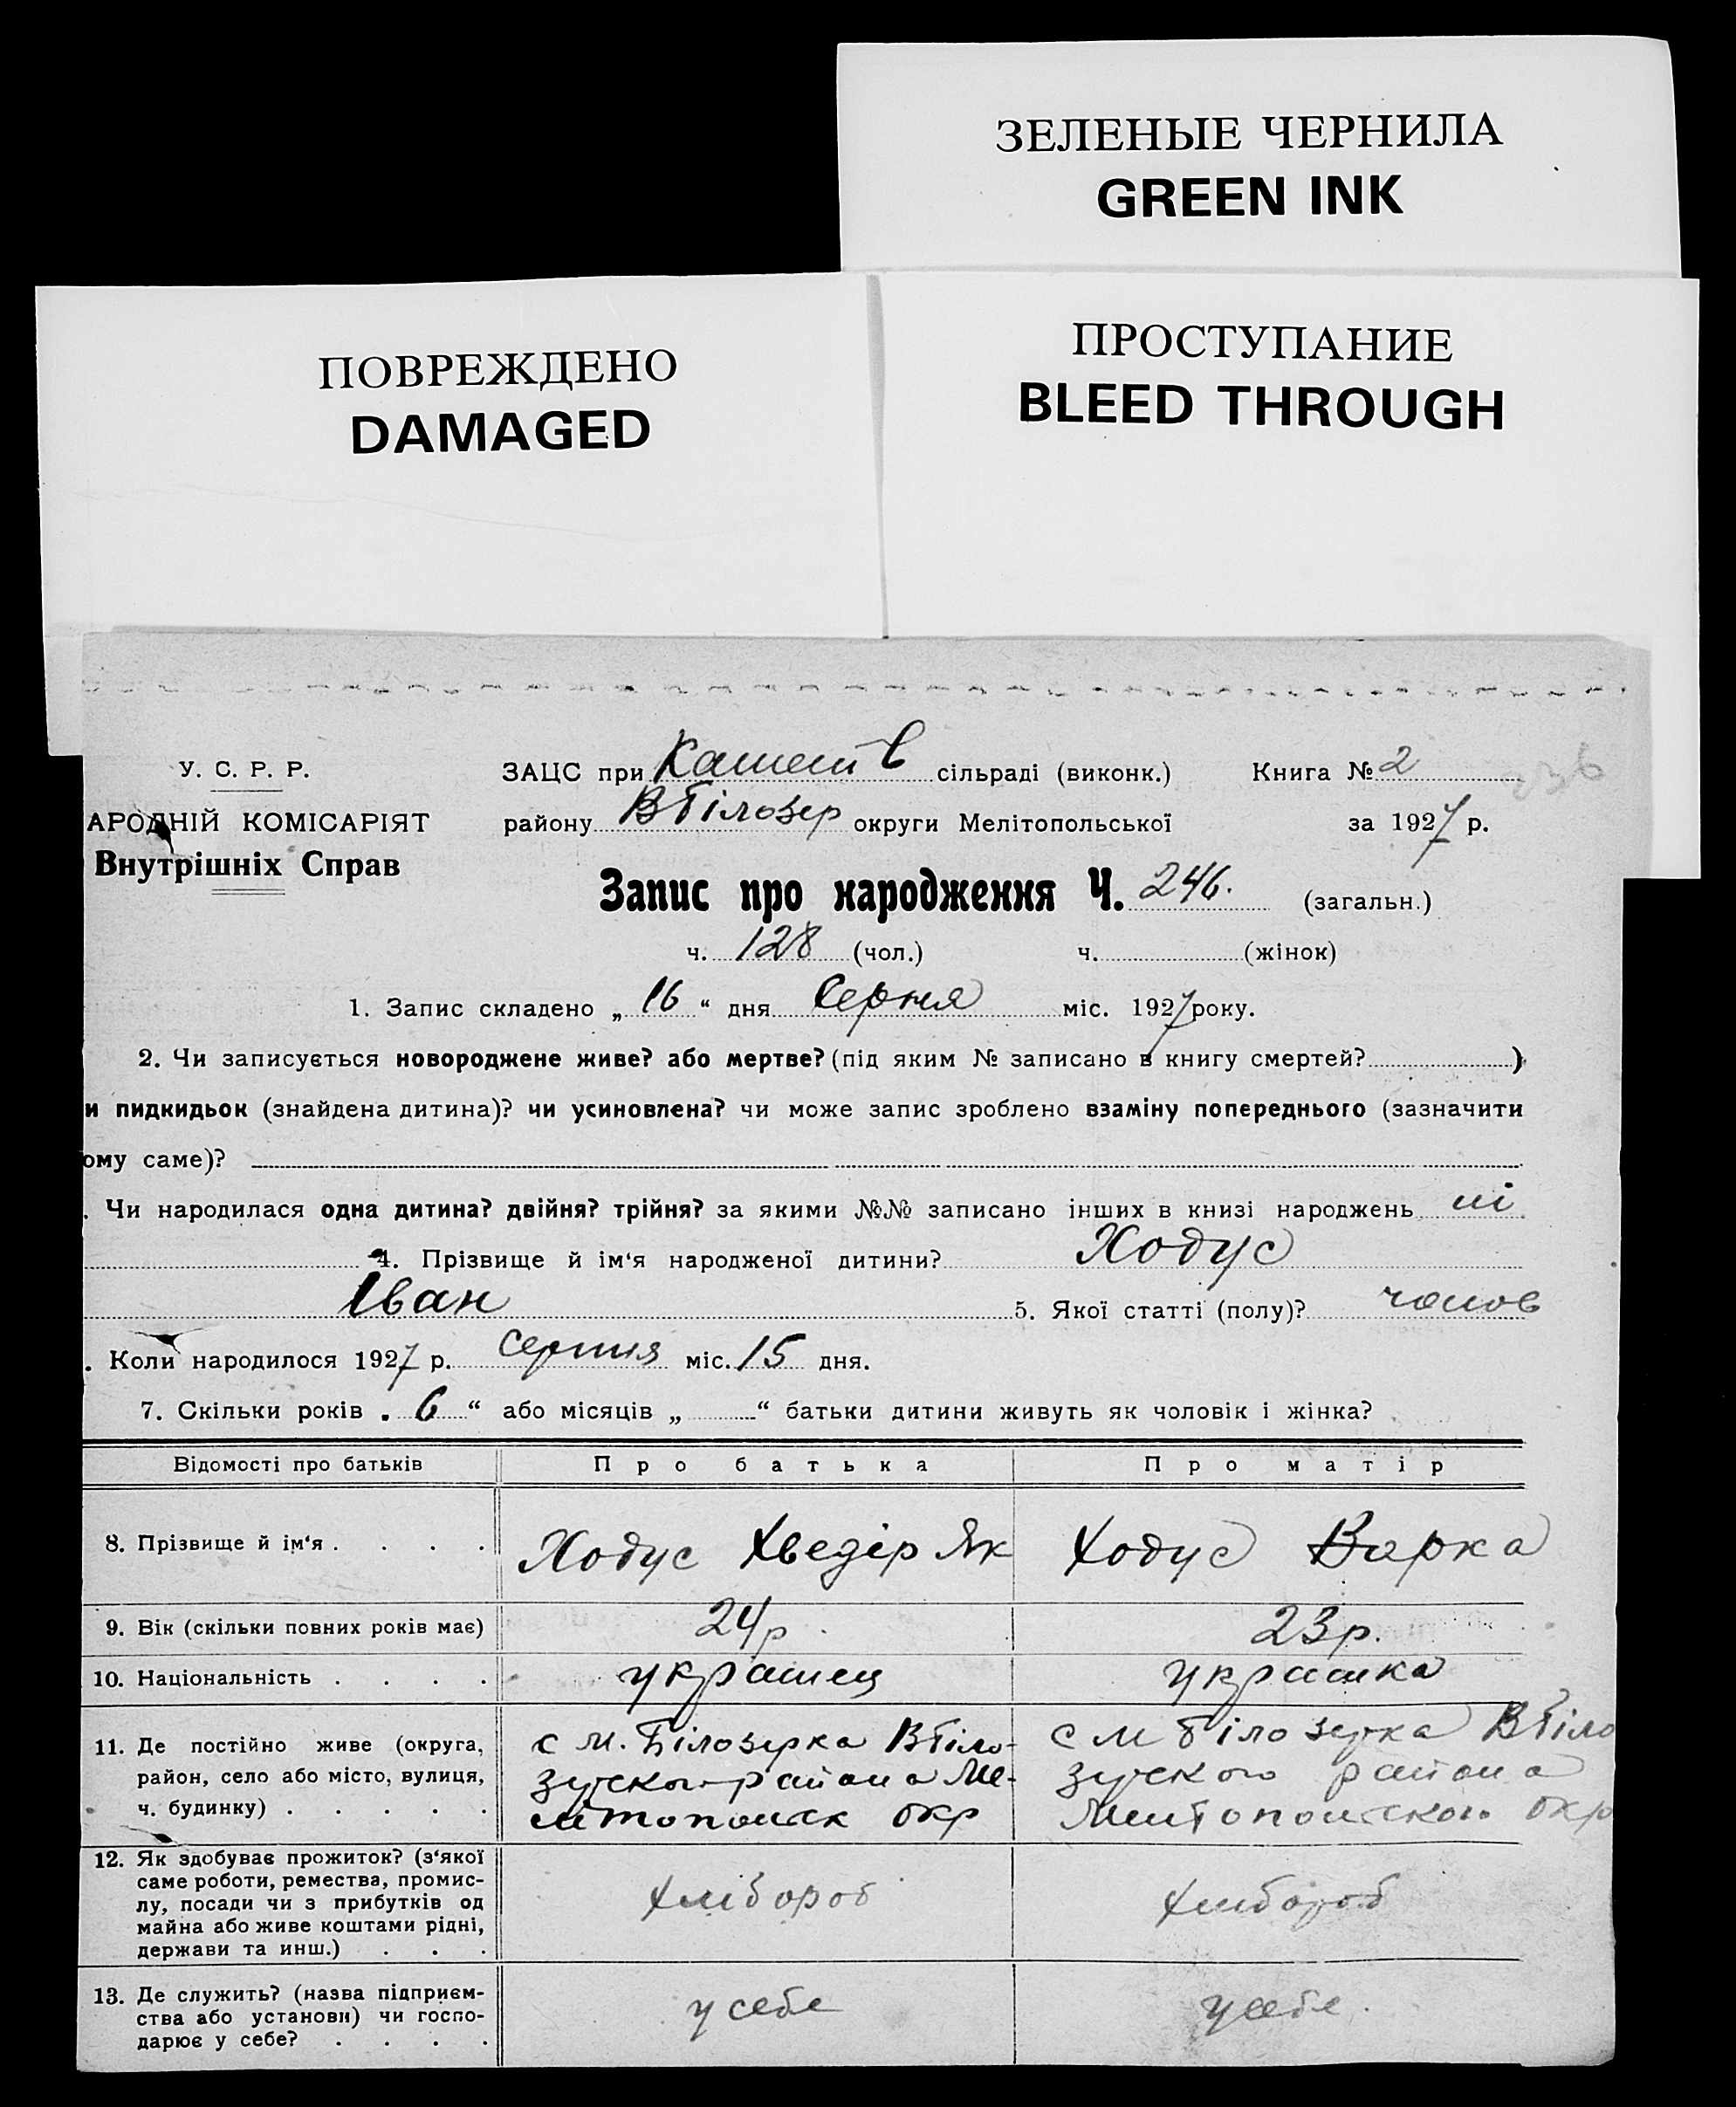 ЗЕЛЕНЫЕ ЧЕРНИЛА
GREEN INK
ПОВРЕЖДЕНО
DAMAGED
ПРОСТУПАНИЕ
BLEED THROUGH
У. С. Р. Р.
ЗАЦС при сільраді (виконк.) Книга № 2
АРОДНІЙ КОМІСАРІЯТ
району ВБілозер округи Мелітопольської за 1927 р.
Внутрішніх Справ
Запис про народження Ч. 246. (загальн.)
ч. 128 (чол.) ч. (жінок)
1. Запис складено „ 16 “ дня Серпня міс. 1927 року.
2. Чи записується новороджене живе? або мертве? (під яким № записано в книгу смертей? )
и пидкидьок (знайдена дитина)? чи усиновлена? чи може запис зроблено взаміну попереднього (зазначити
ому саме)?
. Чи народилася одна дитина? двійня? трійня? за якими №№ записано інших в книзі народжень ні
4. Прізвище й ім‘я народженої дитини? Ходус
Іван 5. Якої статті (полу)? чолов
. Коли народилося 1927 р. серпня міс. 15 дня.
7. Скільки років „ 6 “ або місяців „ “ батьки дитини живуть як чоловік і жінка?
Відомості про батьків Про батька Про матір
8. Прізвище й ім‘я . . . . Ходус Хведір Як Ходус Варка
9. Вік (скільки повних років має) 24р. 23р.
10. Національність . . . . українец українка
11. Де постійно живе (округа, с М. Білозерка ВБіло- с М Білозерка ВБіло
район, село або місто, вулиця, зерского района Ме- зерского района
ч. будинку) . . . . . літопольск окр Мелітопольского окр
12. Як здобуває прожиток? (з‘якої
саме роботи, ремества, промис-
лу, посади чи з прибутків од хлібороб хлібороб
майна або живе коштами рідні,
держави та инш.) . . .
13. Де служить? (назва підприєм-
ства або установи) чи госпо- у себе у себе.
дарює у себе? . . . .